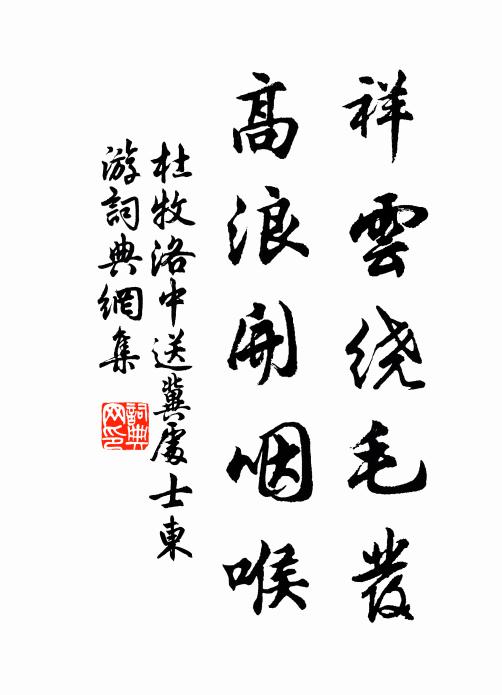 祥雲绕毛發
高浪開咽喉
杜牧洛中送冀處士東
游詞典網集
詞典网印